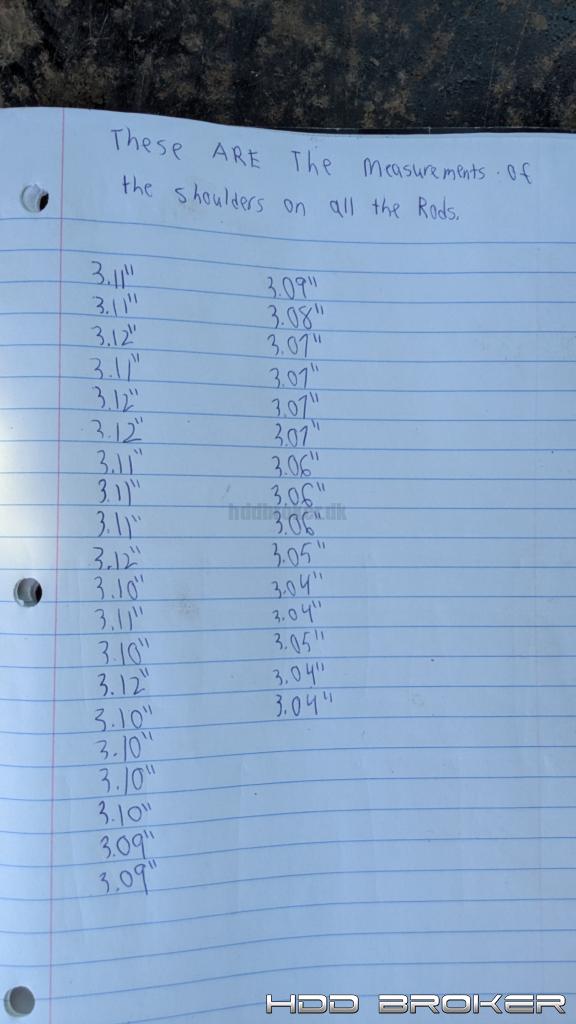 These ARE The Measurements of
the shoulders on all the Rods.
3.11"
3.11"
3.12"
3.11"
3.12"
3.12"
3.11"
3.11"
3.11"
3.12"
3.10"
3.11"
3.10"
3.12"
3.10"
3.10"
3.10"
3.10"
3.09"
3.09"
3.09"
3.08"
3.07"
3.07"
3.07"
3.07"
3.06"
3.06"
3.06"
3.05"
3.04"
3.04"
3.05"
3.04"
3.04"
hddbroker.dk
HDD BROKER